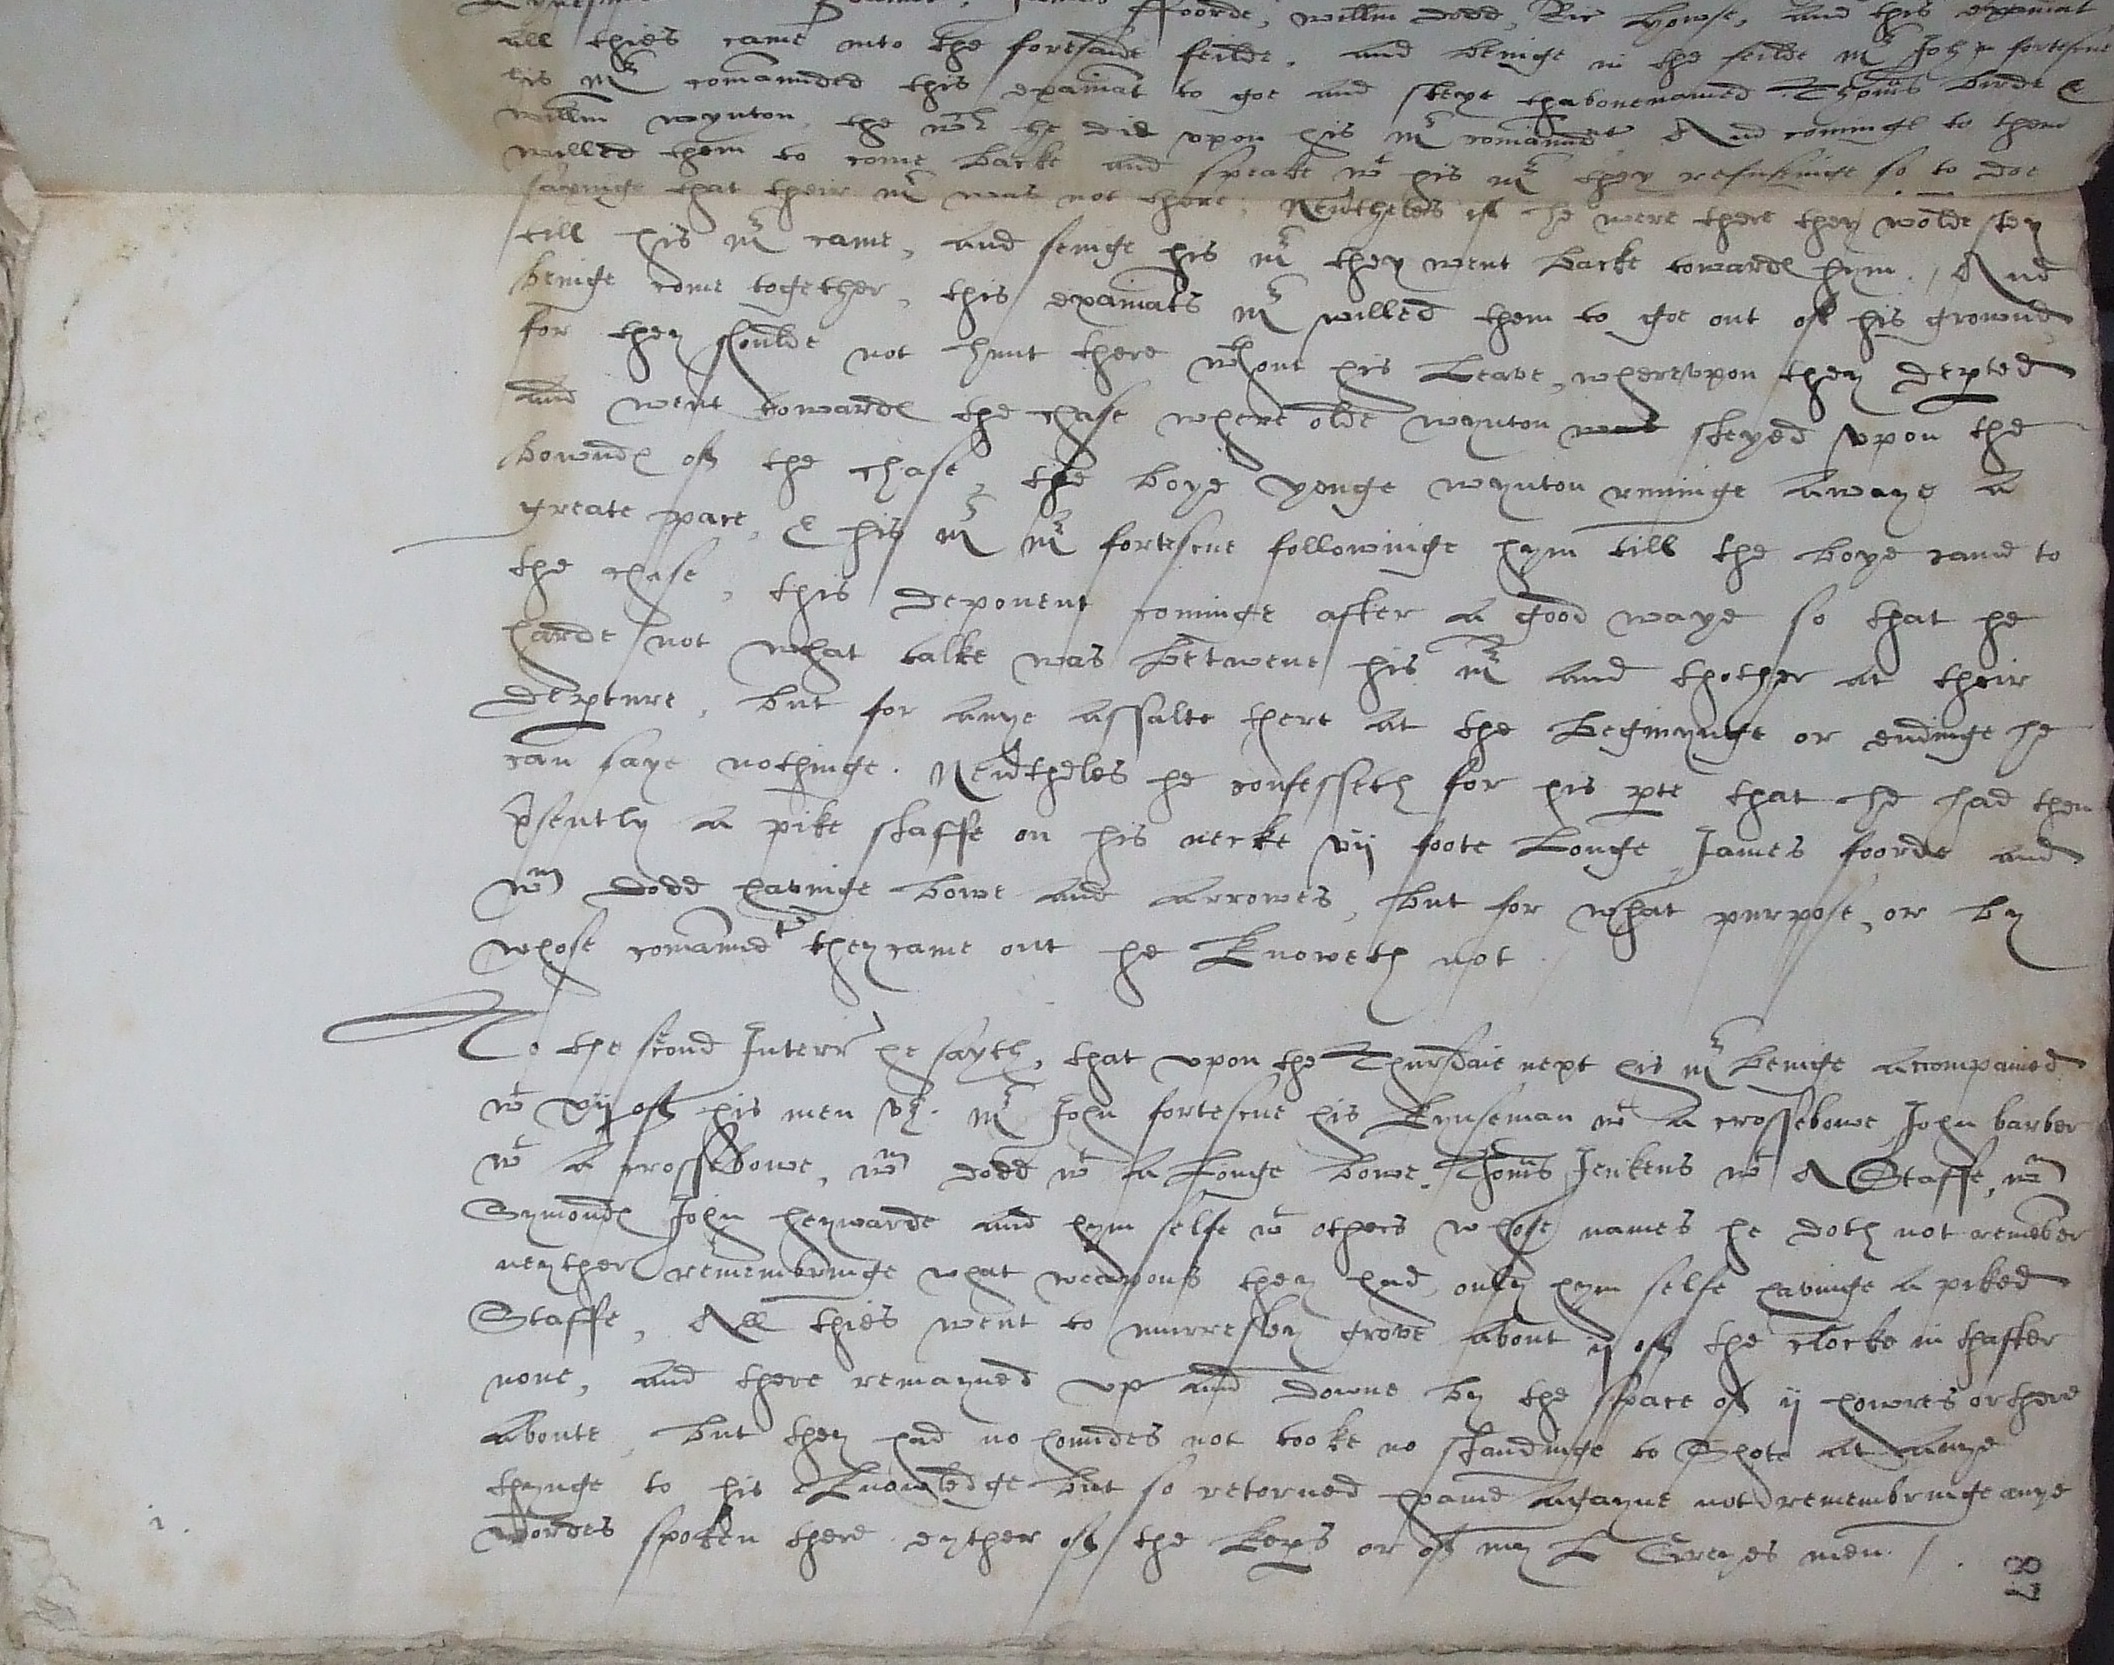 Foorde, willm dodd, Ric howse, and this examat
all thies came into the foresaide feilde, and beinge in the feilde mr John fortescue
his mr comaunded this examat to goe and steye thabovenamed Thoms birde &
willm wynton, the wch he did upon his mr comaundt, And cominge to them
willed them to come backe and speake wt his mr they refusinge so to doe
sayinge that their mr was not there, Nevtheles if he were there they wolde stey
till his mr came, and seinge his mr they went backe towards hym. / And
beinge come together, this examats mr willed them to goe out of his grownd
for they shoulde not hunt there wthout his Leave, wherevpon they depted
and went towards the chase where olde wynton was steyed vpon the
bownds of the chase, the boye yonge wynton runinge awaye a
greate pace, & his mr mr fortescue followinge hym till the boye came to
the chase, this deponent cominge after a good waye so that he
harde not what talke was betwene his mr and thother at their
depture, but for anye assalte there at the beginynge or endinge he
can saye nothinge. Nevtheles he confesseth for his pte that he had then
psently a pike staffe on his necke vij foote Longe James foorde and
wm dodd havinge bowe and arrowes, but for what purpose, or by
whose comaundt they came out he Knoweth not.
To the second Interr he sayth, that vpon the Thursdaie next his mr beinge accompanied
wt xij of his men vz. mr John fortescue his Kynseman wt a crossebowe John barber
wt a crossebowe, wm dodd wt a Longe bowe, Thoms Jenkens wt A Staffe, wm
Symonds John heywarde and hym selfe wt others whose names he doth not remeber
neyther remembringe what weapons they had, only hym selfe havinge a piked
Staffe, All thies went to murresley grove about ij of the clocke in thafter
none, and there remayned vp and downe by the space of ij howres or there
aboute, but they had no houndes not tooke no standinge to Shote at anye
thynge to his Knowledge but so retorned hame agayne not remembringe anye
wordes spoken there eyther of the keps or of my L Greyes men. / .
87